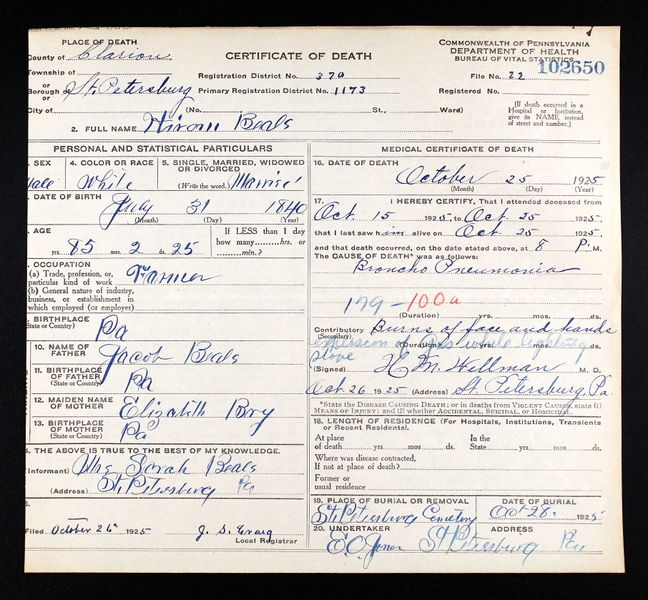 PLACE OF DEATH
County of Clarion
Township of
or
Borough of St. Petersburg
or
City of
CERTIFICATE OF DEATH
Registration District No. 370
Primary Registration District No. 1173
(No. St., Ward)
COMMONWEALTH OF PENNSYLVANIA
DEPARTMENT OF HEALTH
BUREAU OF VITAL STATISTICS
File No. 22 102650
Registered No.
[If death occurred in a
Hospital or Institution,
give its NAME instead
of street and number.]
2. FULL NAME Hiram Beals
PERSONAL AND STATISTICAL PARTICULARS
SEX
Male
4. COLOR OR RACE
White
5. SINGLE, MARRIED, WIDOWED
OR DIVORCED
(Write the word.) Married
DATE OF BIRTH
July 31 1840
(Month) (Day) (Year)
AGE
85 yrs. 2 mos. 25
If LESS than 1 day
how many hrs. or
min.?
OCCUPATION
(a) Trade, profession, or
particular kind of work Farmer
(b) General nature of industry,
business, or establishment in
which employed (or employer)
BIRTHPLACE
(State or Country) Pa
10. NAME OF
FATHER Jacob Beals
11. BIRTHPLACE
OF FATHER
(State or Country) Pa
12. MAIDEN NAME
OF MOTHER Elizabeth
13. BIRTHPLACE
OF MOTHER
(State or Country) Pa
THE ABOVE IS TRUE TO THE BEST OF MY KNOWLEDGE.
(Informant) Mrs Sarah Beals
(Address) St. Petersburg Pa
Filed October 26th 1925 J. S.
Local Registrar
MEDICAL CERTIFICATE OF DEATH
16. DATE OF DEATH
October 25 1925
(Month) (Day) (Year)
17. I HEREBY CERTIFY, That I attended deceased from
Oct. 15 1925, to Oct. 25 1925,
that I last saw him alive on Oct 25 1925,
and that death occurred, on the date stated above, at 8 P. M.
The CAUSE OF DEATH* was as follows:
Broncho Pneumonia
179 - 100a
(Duration) yrs. mos. ds.
Contributory Burns of face and hands
(Secondary)
(Duration) yrs. mos. ds.
of gas while lighting
stove
(Signed) H M. Wellman M. D.
Oct. 26 1925 (Address) St. Petersburg, Pa.
*State the DISEASE CAUSING DEATH; or in deaths from VIOLENT CAUSES, state (1)
MEANS OF INJURY; and (2) whether ACCIDENTAL, SUICIDAL, or HOMICIDAL.
18. LENGTH OF RESIDENCE (For Hospitals, Institutions, Transients
or Recent Residents).
At place
of death yrs. mos. ds.
In the
State yrs. mos. ds.
Where was disease contracted,
If not at place of death?
Former or
usual residence
19. PLACE OF BURIAL OR REMOVAL
St. Petersburg Cemetery
DATE OF BURIAL
Oct 28 1925
20. UNDERTAKER
E. O. Jones
ADDRESS
St Petersburg Pa